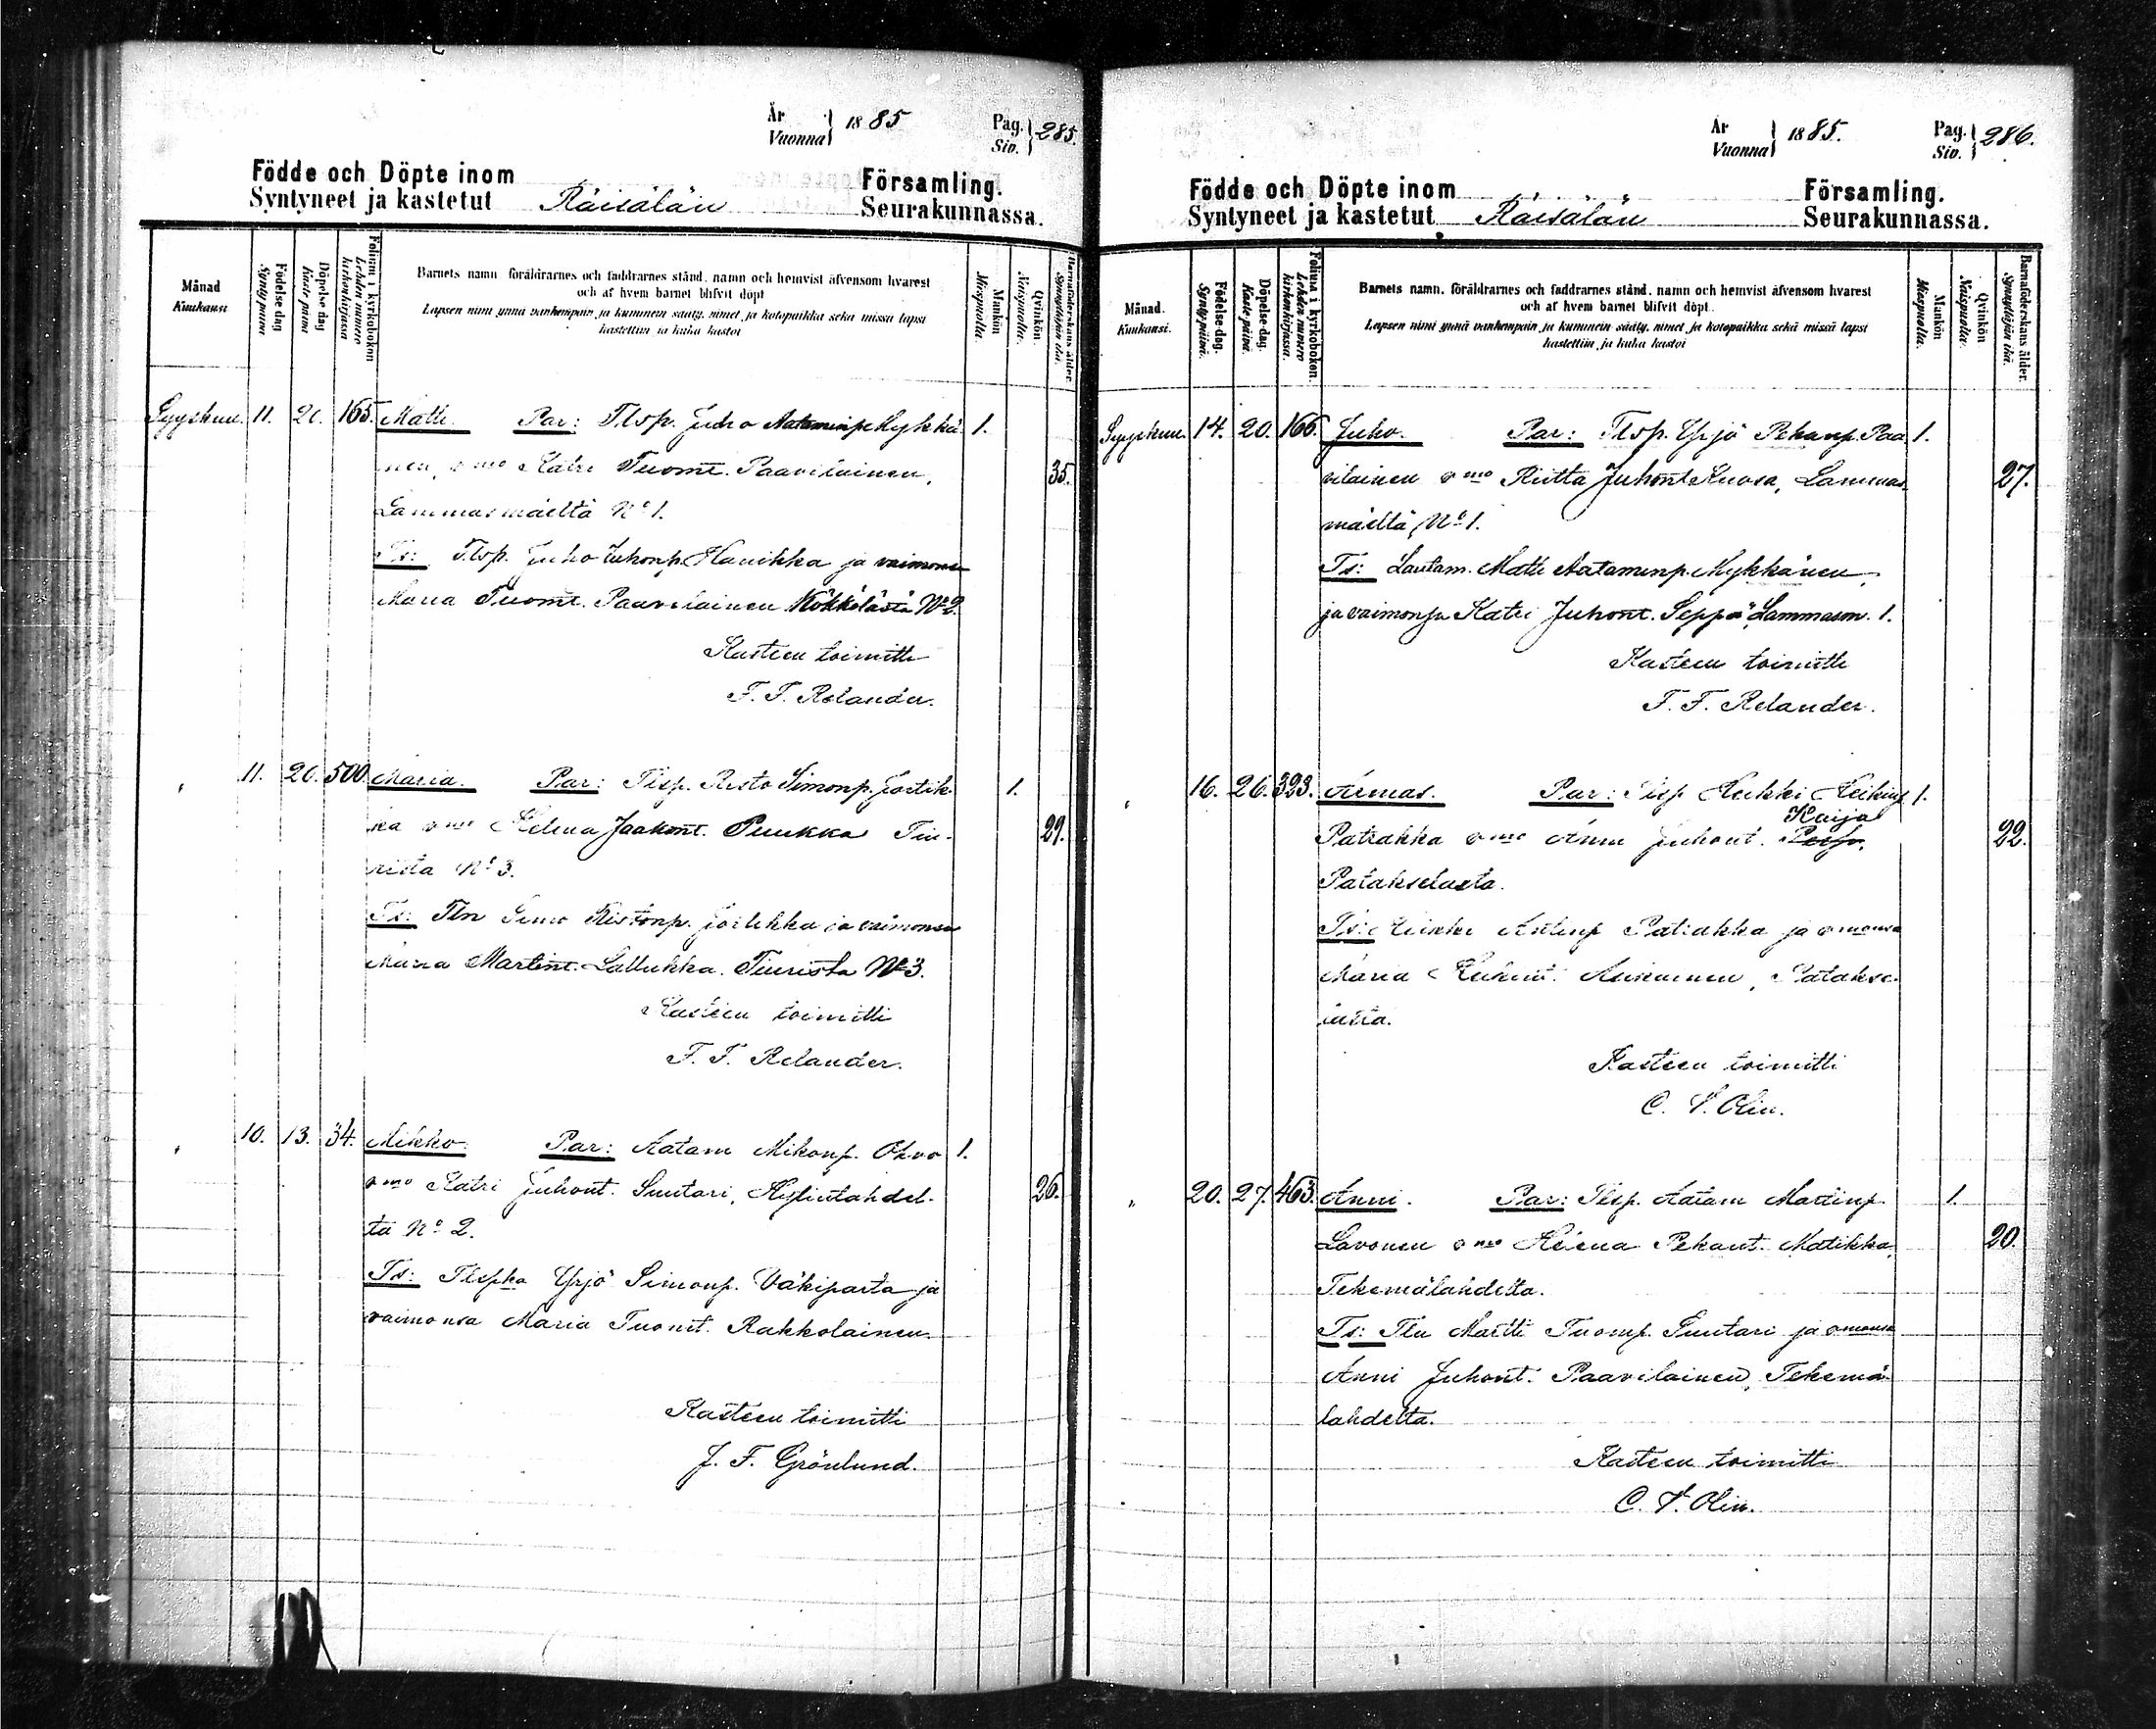 År
Vuonna } 1885
Pag.
Siv. } 285.
Födde och Döpte inom
Syntyneet ja kastetut Räisälän
Församling.
Seurakunnassa.
Månad
Kuukausi
Födelse dag
Synty päivä
Döpelse dag
Kaste päivä
Folium i kyrkoboken
Lehden numero
kirkonkirjassa
Barnets namn föräldrarnes och faddrarnes stånd, namn och hemvist äfvensom hvarest
och af hvem barnet blifvit döpt
Lapsen nimi ynnä vanhempain ja kummein sääty, nimet ja kotopaikka sekä missä lapsi
kastettiin ja kuka kastoi
Mankön
Miespuolia.
Qvinkön
Naispuolia.
Barnaföderskans ålder.
Synnyttäjän ikä.
Syyskuu. 11. 20. 165. Matti. Par: Tlsp. Juho Aataminp. Mykkä- 1.
nen, v mo Katri Tuomt. Paavilainen, 35.
Lammasmäeltä No 1.
Ts: Tlsp. Juho Juhonp. Hanikka ja vaimonsa
Maria Tuomt. Paavilainen Kökkölästä No 2.
Kasteen toimitti
F. F. Relander.
" 11. 20. 500. Maria. Par: Tlsp. Risto Simonp. Jortik- 1.
ka v mo Helena Jaakont. Puukka Tiu- 29.
rista No 3.
Ts: Tln Simo Ristonp. Jortikka ja vaimonsa
Maria Martint. Lallukka. Tiurista No 3.
Kasteen toimitti
F. F. Relander.
" 10. 13. 34. Mikko. Par: Aatam Mikonp. Ohvo 1.
v mo Katri Juhont. Suutari, Hytintahdel- 26.
ta No 2.
Ts: Tlspka Yrjö Simonp. Väkiparta ja
vaimonsa Maria Tuomt. Rakkolainen.
Kasteen toimitti
J. F. Grönlund.
År
Vuonna } 1885.
Pag.
Siv. } 286.
Födde och Döpte inom
Syntyneet ja kastetut Räisälän
Församling.
Seurakunnassa.
Månad.
Kuukausi.
Födelse-dag.
Synty-päivä.
Döpelse-dag.
Kaste-päivä.
Folium i kyrkoboken.
Lehden numero
kirkonkirjassa.
Barnets namn, föräldrarnes och faddrarnes stånd, namn och hemvist äfvensom hvarest
och af hvem barnet blifvit döpt.
Lapsen nimi ynnä vanhempain ja kummein sääty, nimet ja kotopaikka sekä missä lapsi
kastettiin ja kuka kastoi
Mankön
Miespuolia.
Qvinkön
Naispuolia.
Barnaföderskans ålder.
Synnyttäjän ikä.
Syyskuu. 14. 20. 166. Juho. Par: Tlsp. Yrjö Pekanp. Paa- 1.
vilainen v mo Riitta Juhont Kuosa, Lammas- 27.
mäeltä, No 1.
Ts: Lautam. Matti Aataminp. Mykkänen,
ja vaimonsa Katri Juhont. Seppä, Lammasm. 1.
Kasteen toimitti
F. F. Relander.
" 16. 26. 323. Armas. Par: Tlsp Heikki Heikinp 1.
Kaija
Patrakka v mo Anni Juhont. 22.
Patakselasta.
Ts: Heikki Antinp Patrakka ja v monsa
Maria Patakse-
lasta.
Kasteen toimitti
C. S. Olin.
" 20. 27. 463. Anni. Par: Tlsp. Aatam Martinp. 1.
Lavonen v mo Helena Pekant. Matikka, 20.
Tekemälahdelta.
Ts: Tln Martti Tuomp. Suutari ja v monsa
Anni Juhont. Paavilainen, Tekemä-
lahdelta.
Kasteen toimitti
C. S. Olin.